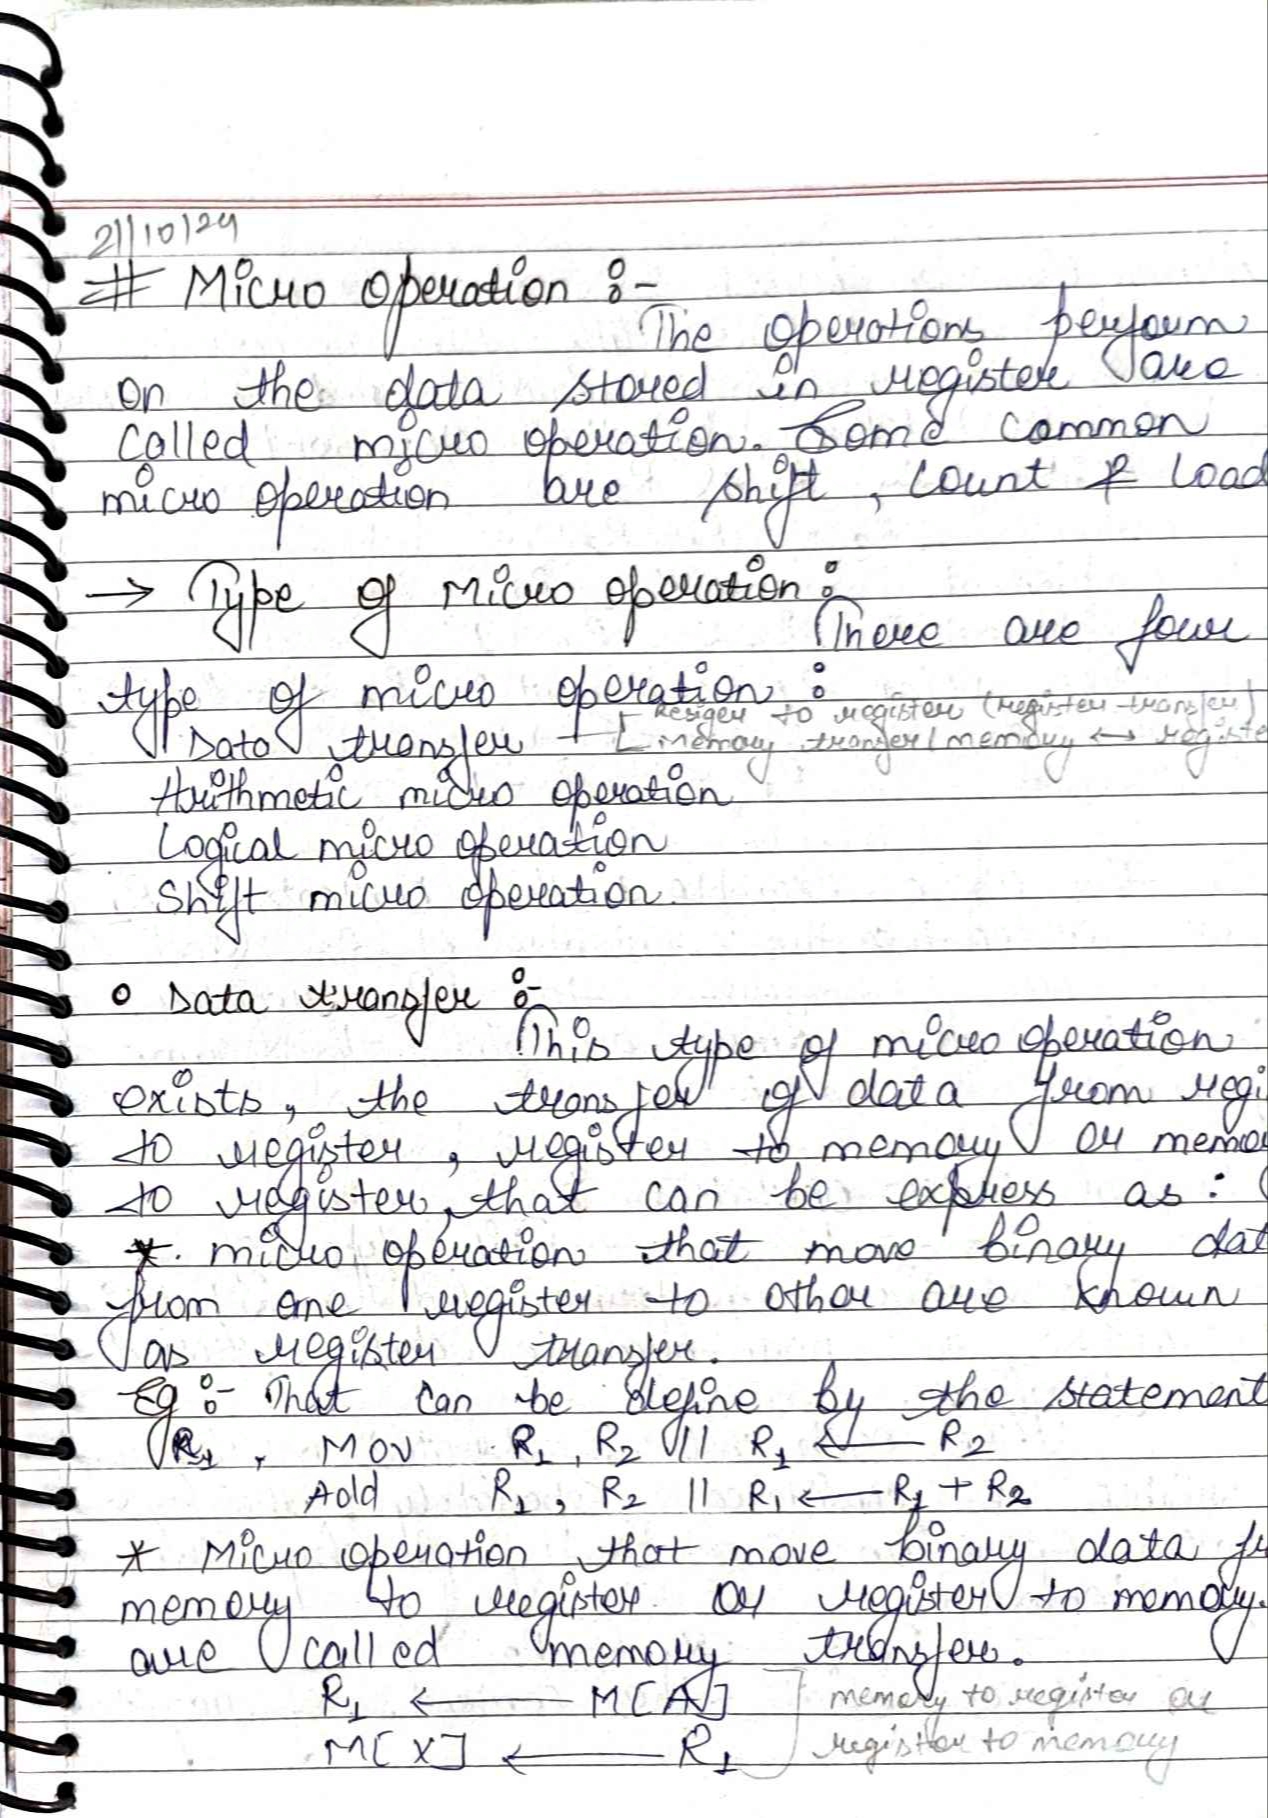 21/10/24
# Micro operation :-
The operations perform
on the data stored in register are
called micro operation. Some common
micro operation are shift, count & load
→ Type of Micro operation :
There are four
type of micro operation :
Resiger to register (register transfer)
Data transfer → [ memory transfer / memory ↔ registe
Arithmetic micro operation
Logical micro operation
Shift micro operation.
o Data transfer :-
This type of micro operation
exists, the transfer of data from regi
to register, register to memory or memo
to register, that can be express as :
*. micro operation that move binary dat
from one register to other are known
as register transfer.
Eg :- That can be define by the statement
R1, MOV R1, R2 || R1 ← R2
Add R1, R2 || R1 ← R1 + R2
* Micro operation that move binary data fr
memory to register or register to memory.
are called memory transfer.
R1 ← M[A] ] memory to register or
M[X] ← R1 register to memory